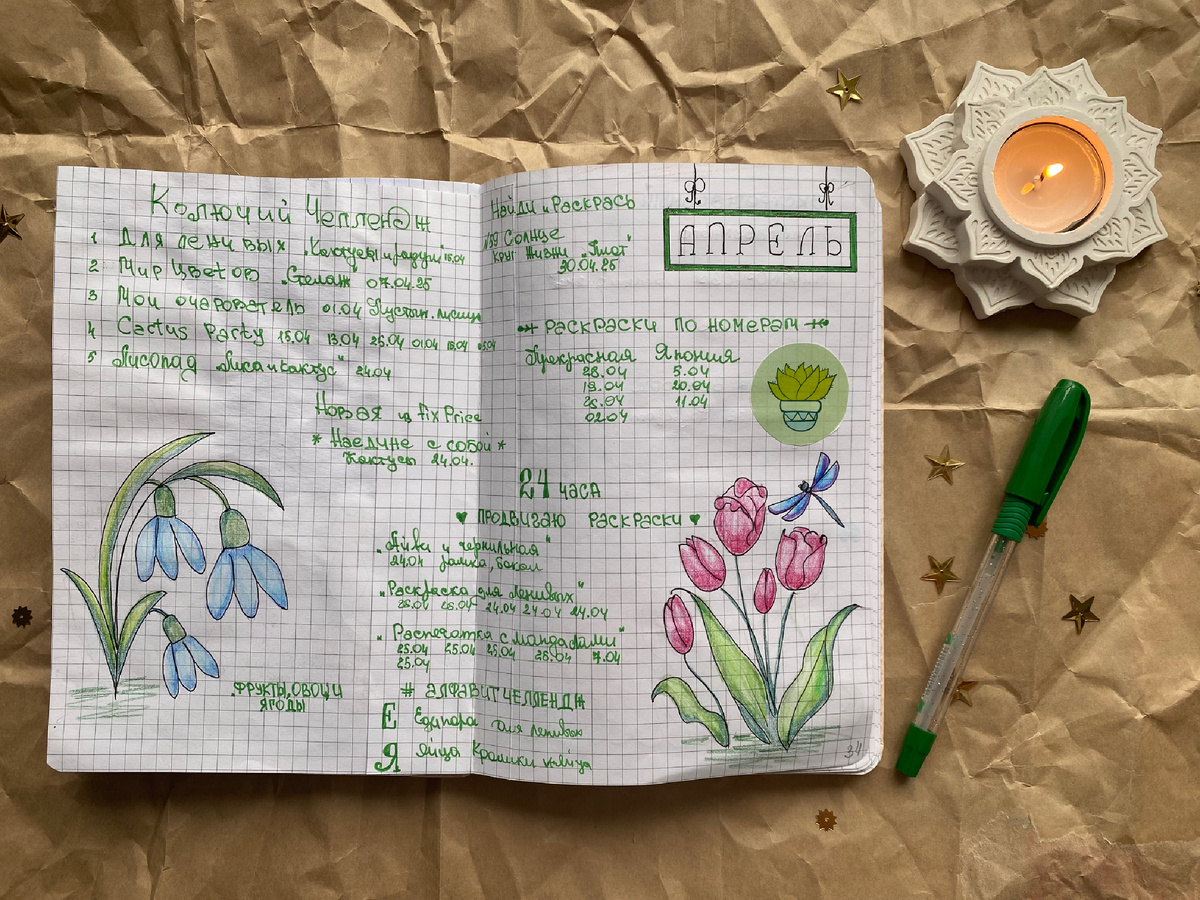 Колючий Челлендж
1 Для ленивых „Кактусы и друзья" 15.04
2 Мир Цветов „Стеллаж 07.04.25
3 Мои очаровател 01.04 Пустын. лисица
4 Cactus Party 15.04 13.04 25.04 01.04 13.04
5 Лисопад „Лиса и кактус" 24.04
Новая из Fix Price
* Наедине с собой *
Кактусы 24.04.
ФРУКТЫ, ОВОЩИ
ЯГОДЫ
Найди и Раскрась
№59 Солнце
Круг Жизни
30.04.25
АПРЕЛЬ
РАСКРАСКИ ПО НОМЕРАМ
Прекрасная Япония
28.04 5.04
19.04 20.04
26.04 11.04
02.04
24 ЧАСА
ПРОДВИГАЮ РАСКРАСКИ
„Ниви и чернильная"
24.04 замка, бокал
„Раскраска для ленивых"
26.04 26.04 24.04 24.04 24.04
„Распечатка с мандалами"
25.04 25.04 25.04 25.04 7.04
25.04
# АЛФАВИТЧЕЛЛЕНДЖ
Е Единорог для ленивых
Я Яйца Крошки
34